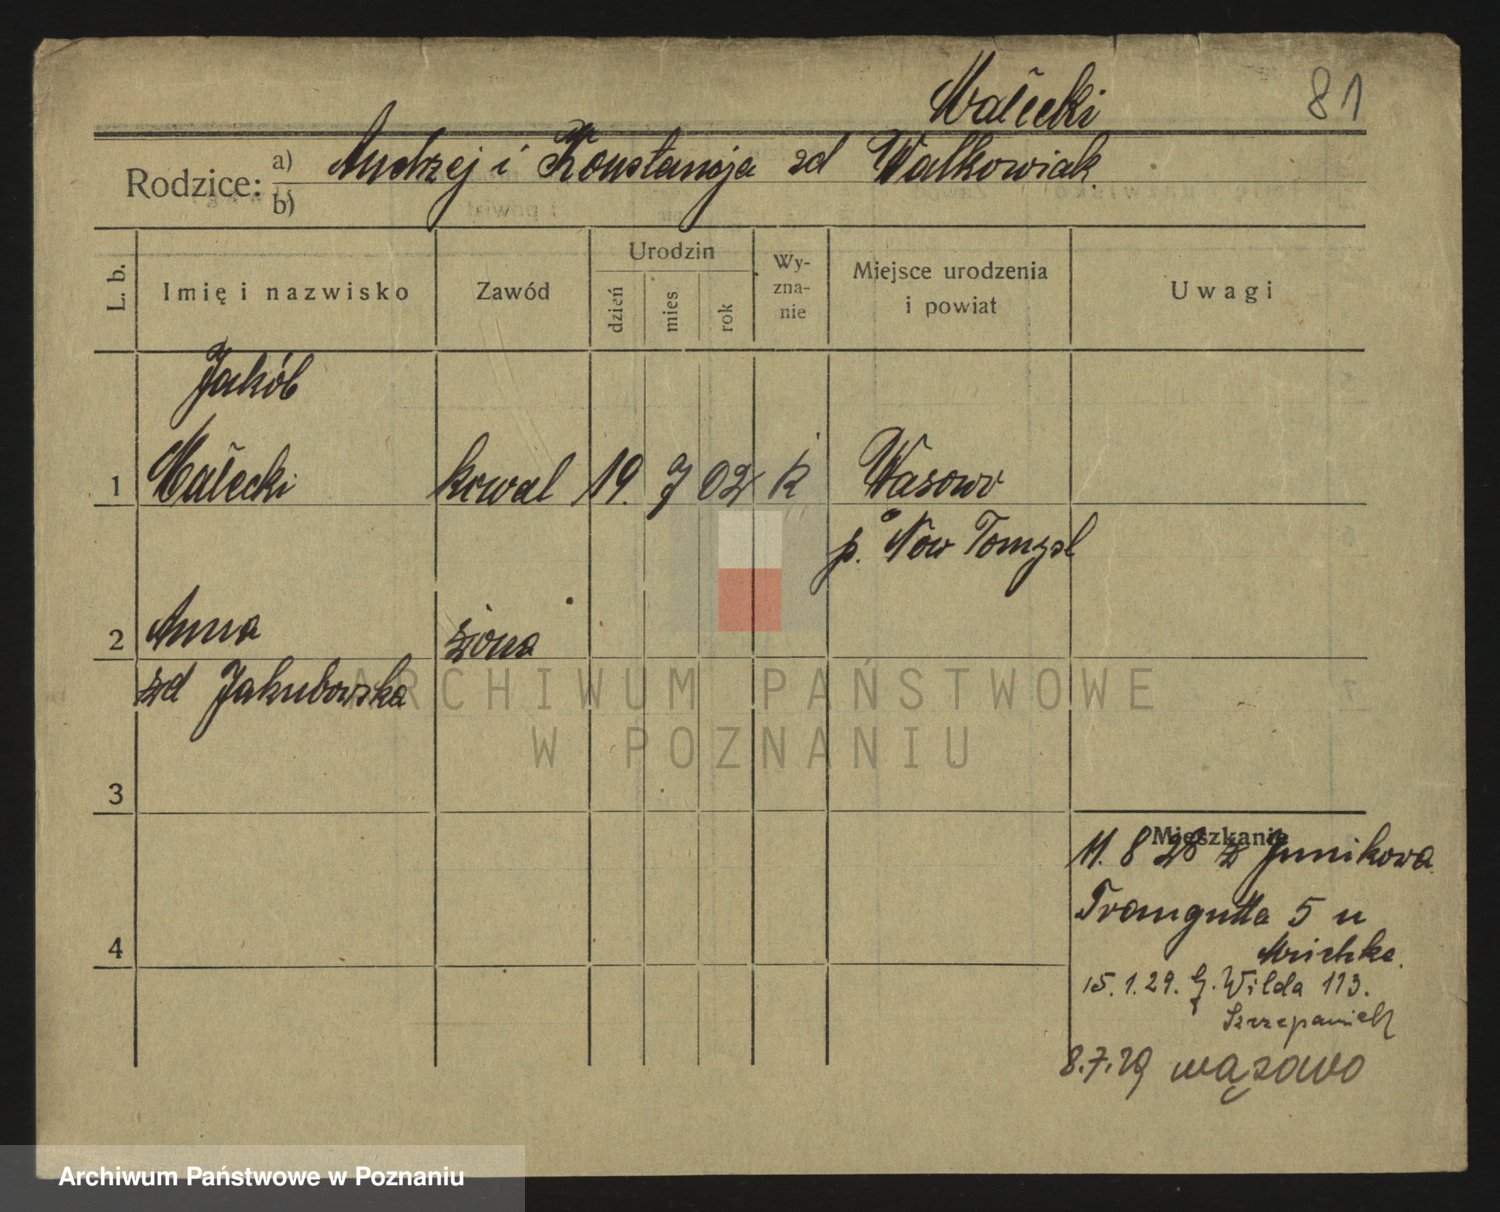 Małecki
81
Rodzice: a) Andrzej i Konstancja zd Walkowiak
b)
L. b.
Imię i nazwisko
Zawód
Urodzin
dzień
mies
rok
Wy-
zna-
nie
Miejsce urodzenia
i powiat
Uwagi
Jakób
1 Małecki kowal 19. 7 02 k Wąsowo
p. Now Tomyśl
2 Anna żona
zd Jakubowska
ARCHIWUM PAŃSTWOWE
W POZNANIU
3
Mieszkanie
11. 8 28 z Junikowa
Traugutta 5 u
4
15.1.29. G. Wilda 113.
Szczepaniak
8.7.29 Wąsowo
Archiwum Państwowe w Poznaniu